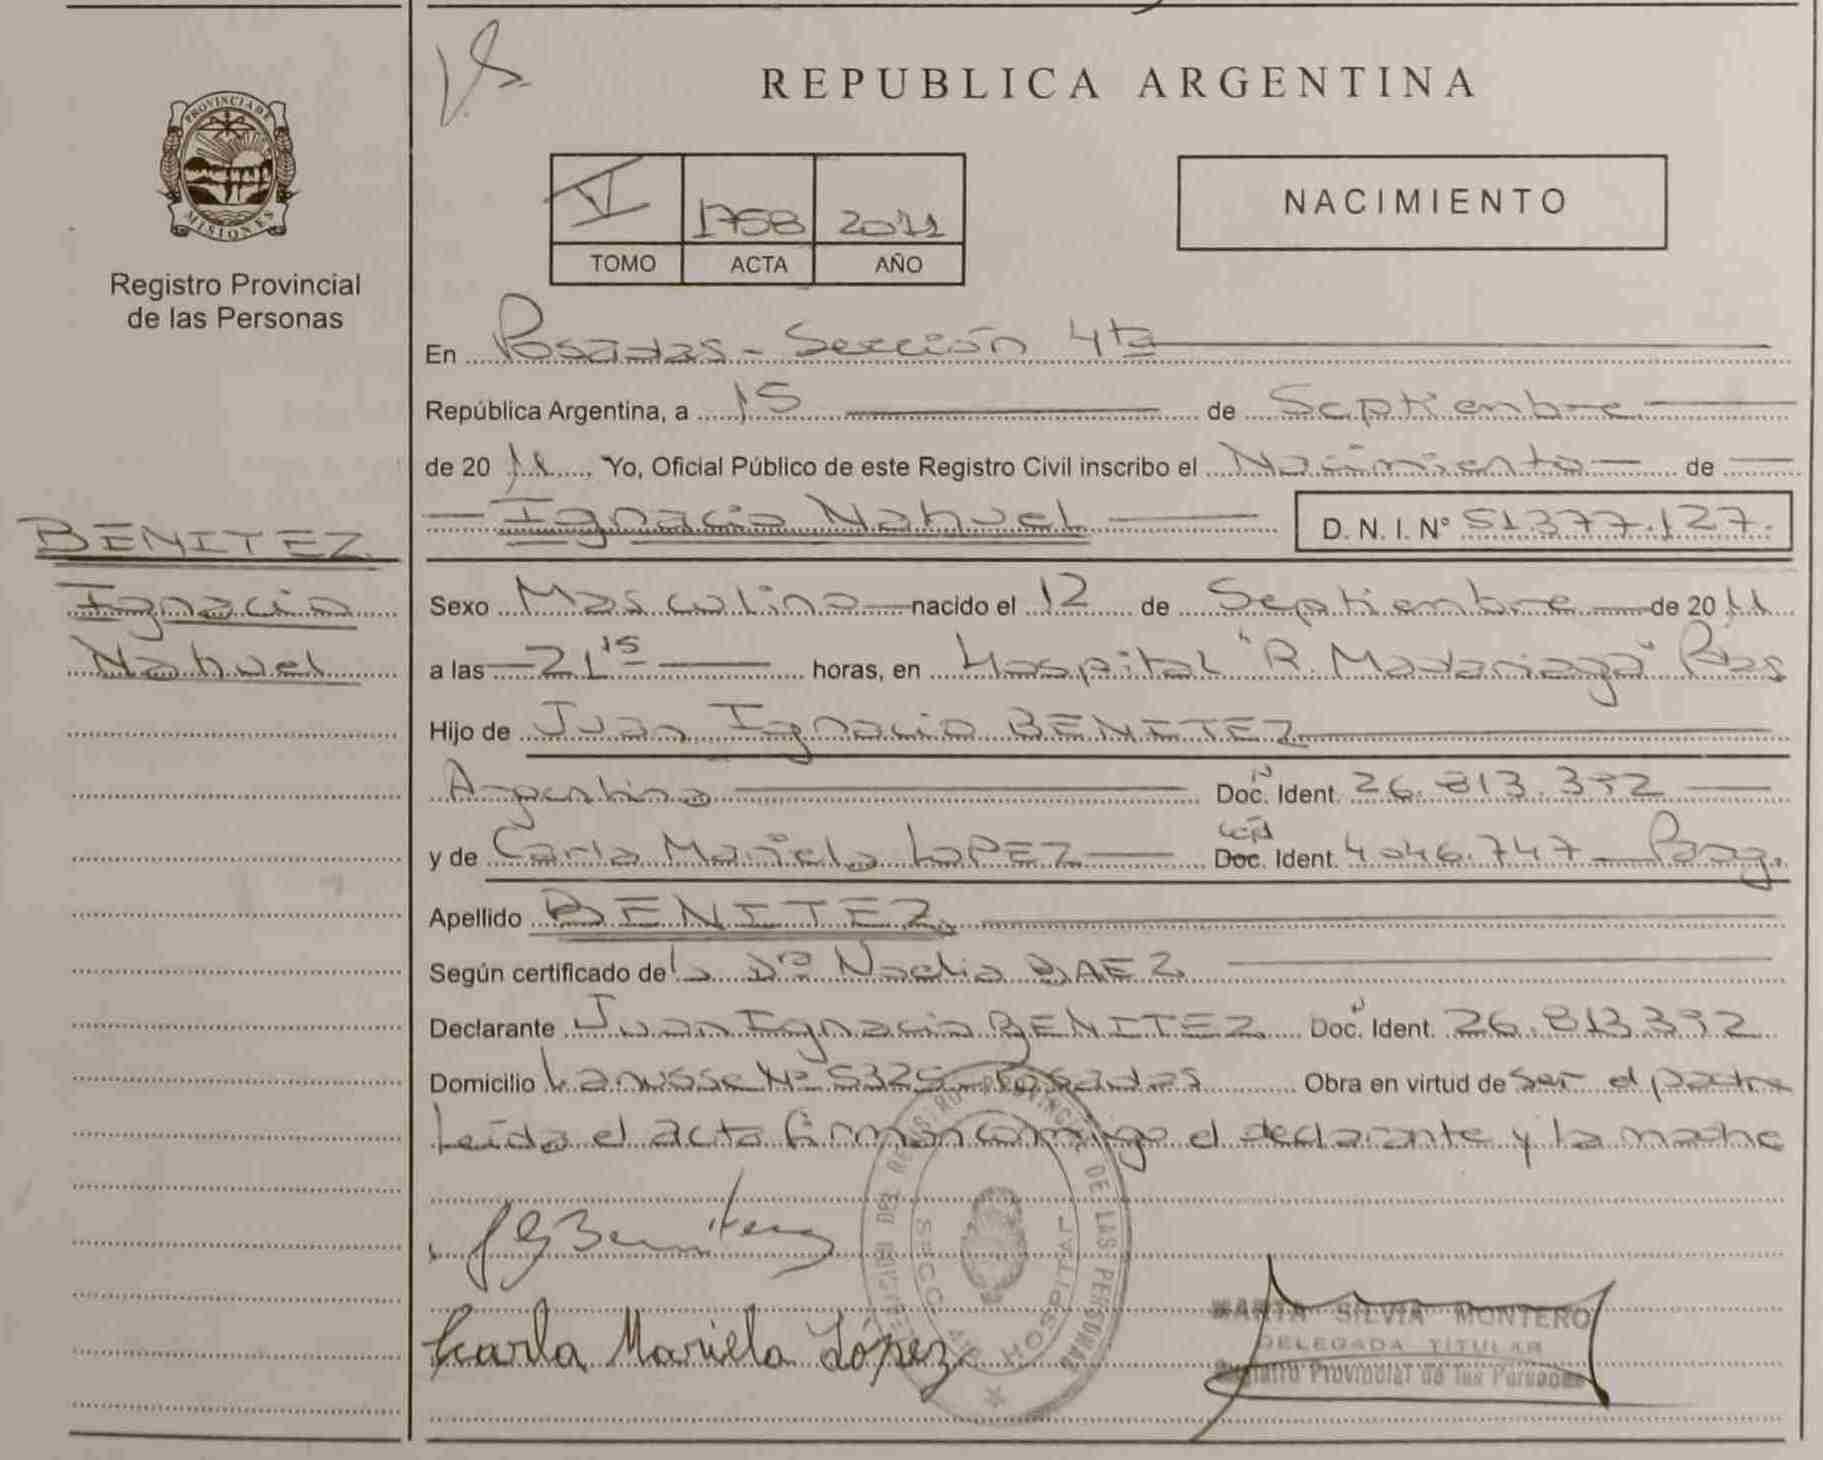 REPUBLICA ARGENTINA
PROVINCIA DE MISIONES
Registro Provincial
de las Personas
V 1758 2011
TOMO ACTA AÑO
NACIMIENTO
En Posadas - Sección 4ta
República Argentina, a 15 de Septiembre
de 2011 Yo, Oficial Público de este Registro Civil inscribo el Nacimiento de
Ignacio Nahuel D.N.I. N° 51377.127.
BENITEZ
Ignacio
Nahuel
Sexo Masculino nacido el 12 de Septiembre de 2011
a las 21 15 horas, en Hospital "R. Madariaga" Pdas
Hijo de Juan Ignacio BENITEZ
Argentino Doc. Ident. 26.813.392
y de Carla Mariela LOPEZ Doc. Ident. 4046.747 Parag.
Apellido BENITEZ
Según certificado de la Dra Nadia BAEZ
Declarante Juan Ignacio BENITEZ Doc. Ident. 26.813.392
Domicilio Lanusse N° 5325 - Posadas Obra en virtud de ser el padre
Leída el acta firman conmigo el declarante y la madre
Benitez
Carla Mariela López
DEL REGISTRO PROVINCIAL DE LAS PERSONAS
SECC. 4ta HOSPITAL
MARTA SILVIA MONTERO
DELEGADA TITULAR
Registro Provincial de las Personas